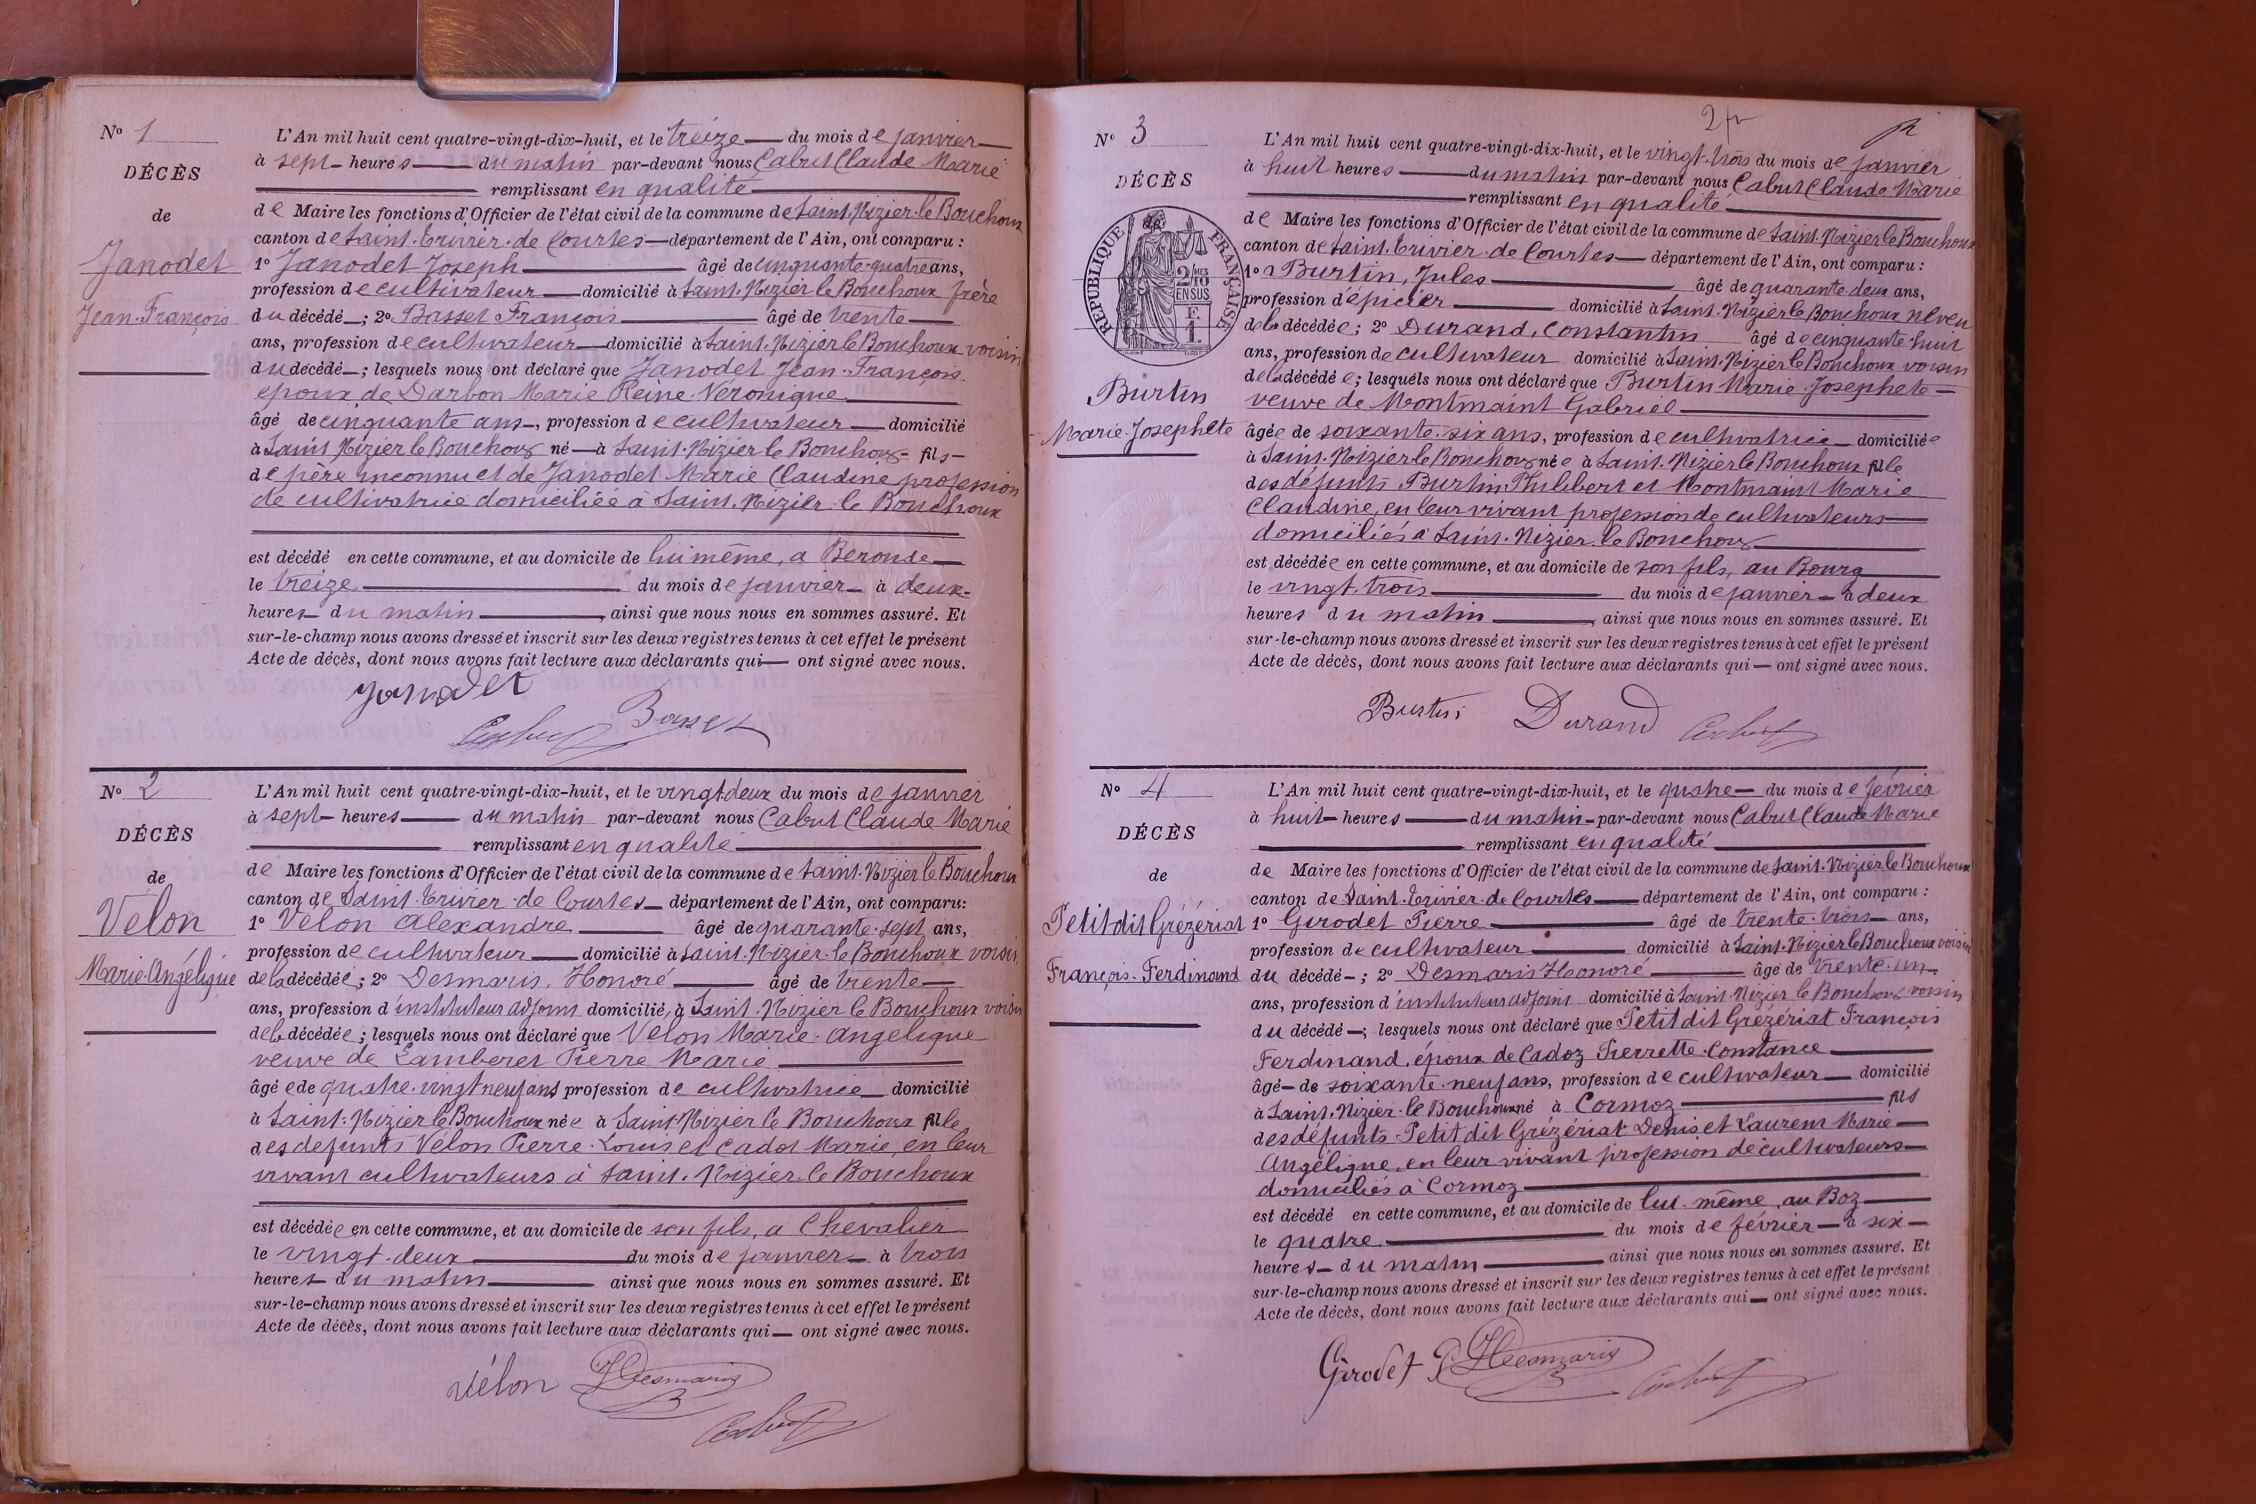 No 1
DÉCÈS
de
Janodet
Jean-François
L'An mil huit cent quatre-vingt-dix-huit, et le treize du mois de janvier
à sept heures du matin par-devant nous Cabut Claude Marie
remplissant en qualité
de Maire les fonctions d'Officier de l'état civil de la commune de Saint-Nizier-le-Bouchoux
canton de Saint-Trivier-de-Courtes département de l'Ain, ont comparu :
1º Janodet Joseph âgé de cinquante-quatre ans,
profession de cultivateur domicilié à Saint-Nizier le Bouchoux frère
du décédé ; 2º Basset François âgé de trente
ans, profession de cultivateur domicilié à Saint-Nizier le Bouchoux voisin
du décédé ; lesquels nous ont déclaré que Janodet Jean-François
époux de Darbon Marie Reine Véronique
âgé de cinquante ans, profession de cultivateur domicilié
à Saint Nizier le Bouchoux né à Saint-Nizier le Bouchoux fils
de père inconnu et de Janodet Marie Claudine profession
de cultivatrice domiciliée à Saint-Nizier-le Bouchoux
est décédé en cette commune, et au domicile de lui même, a Beronde
le treize du mois de janvier à deux
heures du matin, ainsi que nous nous en sommes assuré. Et
sur-le-champ nous avons dressé et inscrit sur les deux registres tenus à cet effet le présent
Acte de décès, dont nous avons fait lecture aux déclarants qui ont signé avec nous.
Janodet
Cabut Basset
No 2
DÉCÈS
de
Velon
Marie-Angélique
L'An mil huit cent quatre-vingt-dix-huit, et le vingt-deux du mois de janvier
à sept heures du matin par-devant nous Cabut Claude Marie
remplissant en qualité
de Maire les fonctions d'Officier de l'état civil de la commune de Saint-Nizier le Bouchoux
canton de Saint-Trivier-de-Courtes département de l'Ain, ont comparu:
1º Velon Alexandre âgé de quarante-sept ans,
profession de cultivateur domicilié à Saint-Nizier-le-Bouchoux voisin
de la décédée ; 2º Desmaris, Honoré âgé de trente
ans, profession d'instituteur adjoint domicilié à Saint-Nizier le Bouchoux voisin
de la décédée ; lesquels nous ont déclaré que Velon Marie-Angélique
veuve de Lamberet Pierre Marie
âgée de quatre-vingt neuf ans profession de cultivatrice domicilié
à Saint-Nizier le Bouchoux née à Saint-Nizier le Bouchoux fille
des défunts Velon Pierre-Louis et Cadot Marie, en leur
vivant cultivateurs à Saint-Nizier-le Bouchoux
est décédée en cette commune, et au domicile de son fils, a Chevalier
le vingt-deux du mois de janvier à trois
heures du matin ainsi que nous nous en sommes assuré. Et
sur-le-champ nous avons dressé et inscrit sur les deux registres tenus à cet effet le présent
Acte de décès, dont nous avons fait lecture aux déclarants qui ont signé avec nous.
Vélon HDesmaris
Cabut
No 3
DÉCÈS
RÉPUBLIQUE FRANÇAISE
2/10 EN SUS
Burtin
Marie-Josephete
L'An mil huit cent quatre-vingt-dix-huit, et le vingt-trois du mois de janvier
à huit heures du matin par-devant nous Cabut Claude Marie
remplissant en qualité
de Maire les fonctions d'Officier de l'état civil de la commune de Saint-Nizier le Bouchoux
canton de Saint-Trivier-de Courtes département de l'Ain, ont comparu :
1º Burtin, Jules âgé de quarante deux ans,
profession d'épicier domicilié à Saint-Nizier le Bouchoux neveu
de la décédée ; 2º Durand, Constantin âgé de cinquante-huit
ans, profession de cultivateur domicilié à Saint-Nizier le Bouchoux voisin
de la décédée ; lesquels nous ont déclaré que Burtin Marie-Josephete
veuve de Montmaint Gabriel
âgée de soixante-six ans, profession de cultivatrice domiciliée
à Saint-Nizier le Bouchoux née à Saint-Nizier le Bouchoux fille
des défunts Burtin Philibert et Montmaint Marie
Claudine, en leur vivant profession de cultivateurs
domiciliés à Saint-Nizier-le Bouchoux
est décédée en cette commune, et au domicile de son fils, au Bourg
le vingt-trois du mois de janvier à deux
heures du matin, ainsi que nous nous en sommes assuré. Et
sur-le-champ nous avons dressé et inscrit sur les deux registres tenus à cet effet le présent
Acte de décès, dont nous avons fait lecture aux déclarants qui ont signé avec nous.
Burtin Durand Cabut
No 4
DÉCÈS
de
Petit dit Grézériat
François-Ferdinand
L'An mil huit cent quatre-vingt-dix-huit, et le quatre du mois de février
à huit heures du matin par-devant nous Cabut Claude Marie
remplissant en qualité
de Maire les fonctions d'Officier de l'état civil de la commune de Saint-Nizier le Bouchoux
canton de Saint-Trivier-de-Courtes département de l'Ain, ont comparu :
1º Girodet Pierre âgé de trente-trois ans,
profession de cultivateur domicilié à Saint-Nizier le Bouchoux voisin
du décédé ; 2º Desmaris Honoré âgé de trente-un
ans, profession d'instituteur adjoint domicilié à Saint-Nizier le Bouchoux voisin
du décédé ; lesquels nous ont déclaré que Petit dit Grézériat François
Ferdinand, époux de Cadoz Pierrette-Constance
âgé de soixante-neuf ans, profession de cultivateur domicilié
à Saint-Nizier-le Bouchoux né à Cormoz fils
des défunts Petit dit Grézériat Denis et Laurent Marie
Angélique, en leur vivant profession de cultivateurs
domiciliés à Cormoz
est décédé en cette commune, et au domicile de lui-même, au Boz
le quatre du mois de février à six
heures du matin ainsi que nous nous en sommes assuré. Et
sur-le-champ nous avons dressé et inscrit sur les deux registres tenus à cet effet le présent
Acte de décès, dont nous avons fait lecture aux déclarants qui ont signé avec nous.
Girodet P HDesmaris Cabut